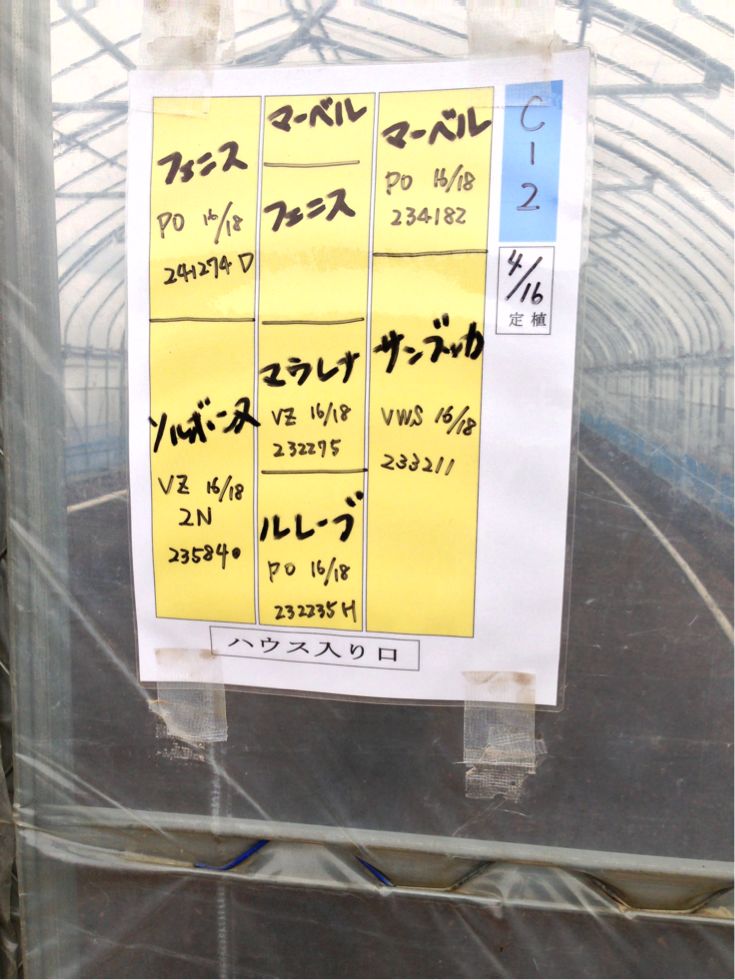 フェニス
PO 16/18
241274D
ソルボーンヌ
VZ 16/18
2N
235840
マーベル
フェニス
マラレナ
VZ 16/18
232275
ルレーブ
PO 16/18
232235H
マーベル
PO 16/18
234182
サンブッカ
VWS 16/18
233211
C-2
4/16
定植
ハウス入り口